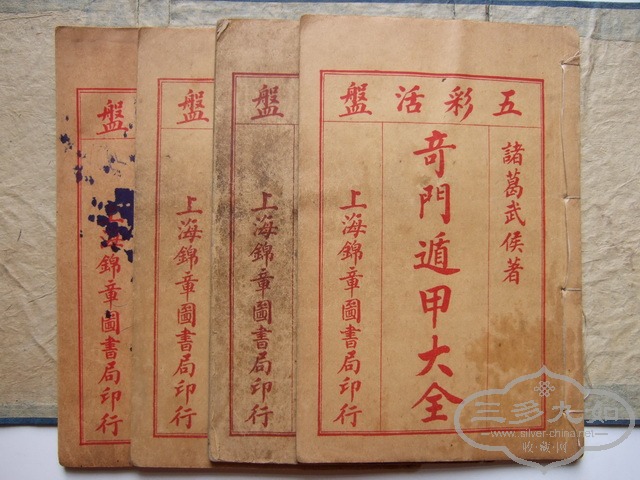 五彩活盤
諸葛武侯著
奇門遁甲大全
上海錦章圖書局印行
盤
上海錦章圖書局印行
盤
上海錦章圖書局印行
盤
上海錦章圖書局印行
三多太和
www.silver-china.net
收·藏·网